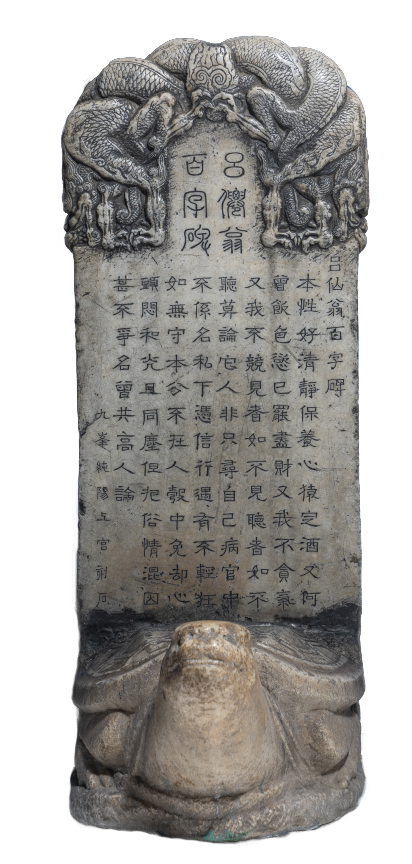 呂僊翁
百字碑
呂仙翁百字碑
本性好清靜保養心猿定酒又何
曾飲色慾已罷盡財又我不貪氣
又我不競見者如不見聽者如不
聽莫論它人非只尋自己病官中
不係名私下憑信行遇有不輕狂
如無守本分不在人彀中免却心
頭悶和光且同塵但把俗情混因
甚不爭名曾共高人論
九峯純陽上宮刻石